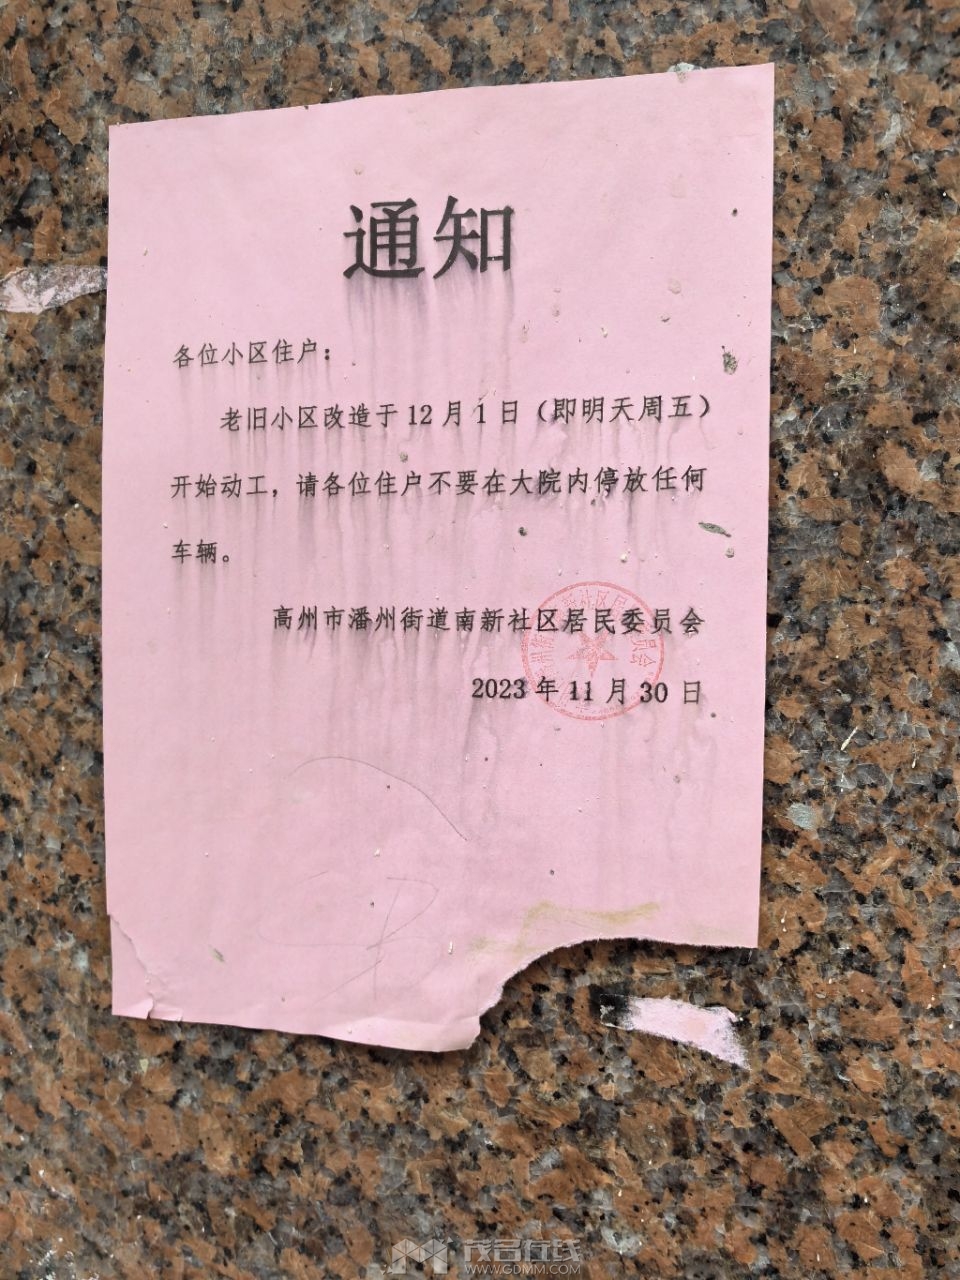 通知
各位小区住户：
老旧小区改造于12月1日（即明天周五）
开始动工，请各位住户不要在大院内停放任何
车辆。
高州市潘州街道南新社区居民委员会
2023年11月30日
茂名在线
WWW.GDMM.COM